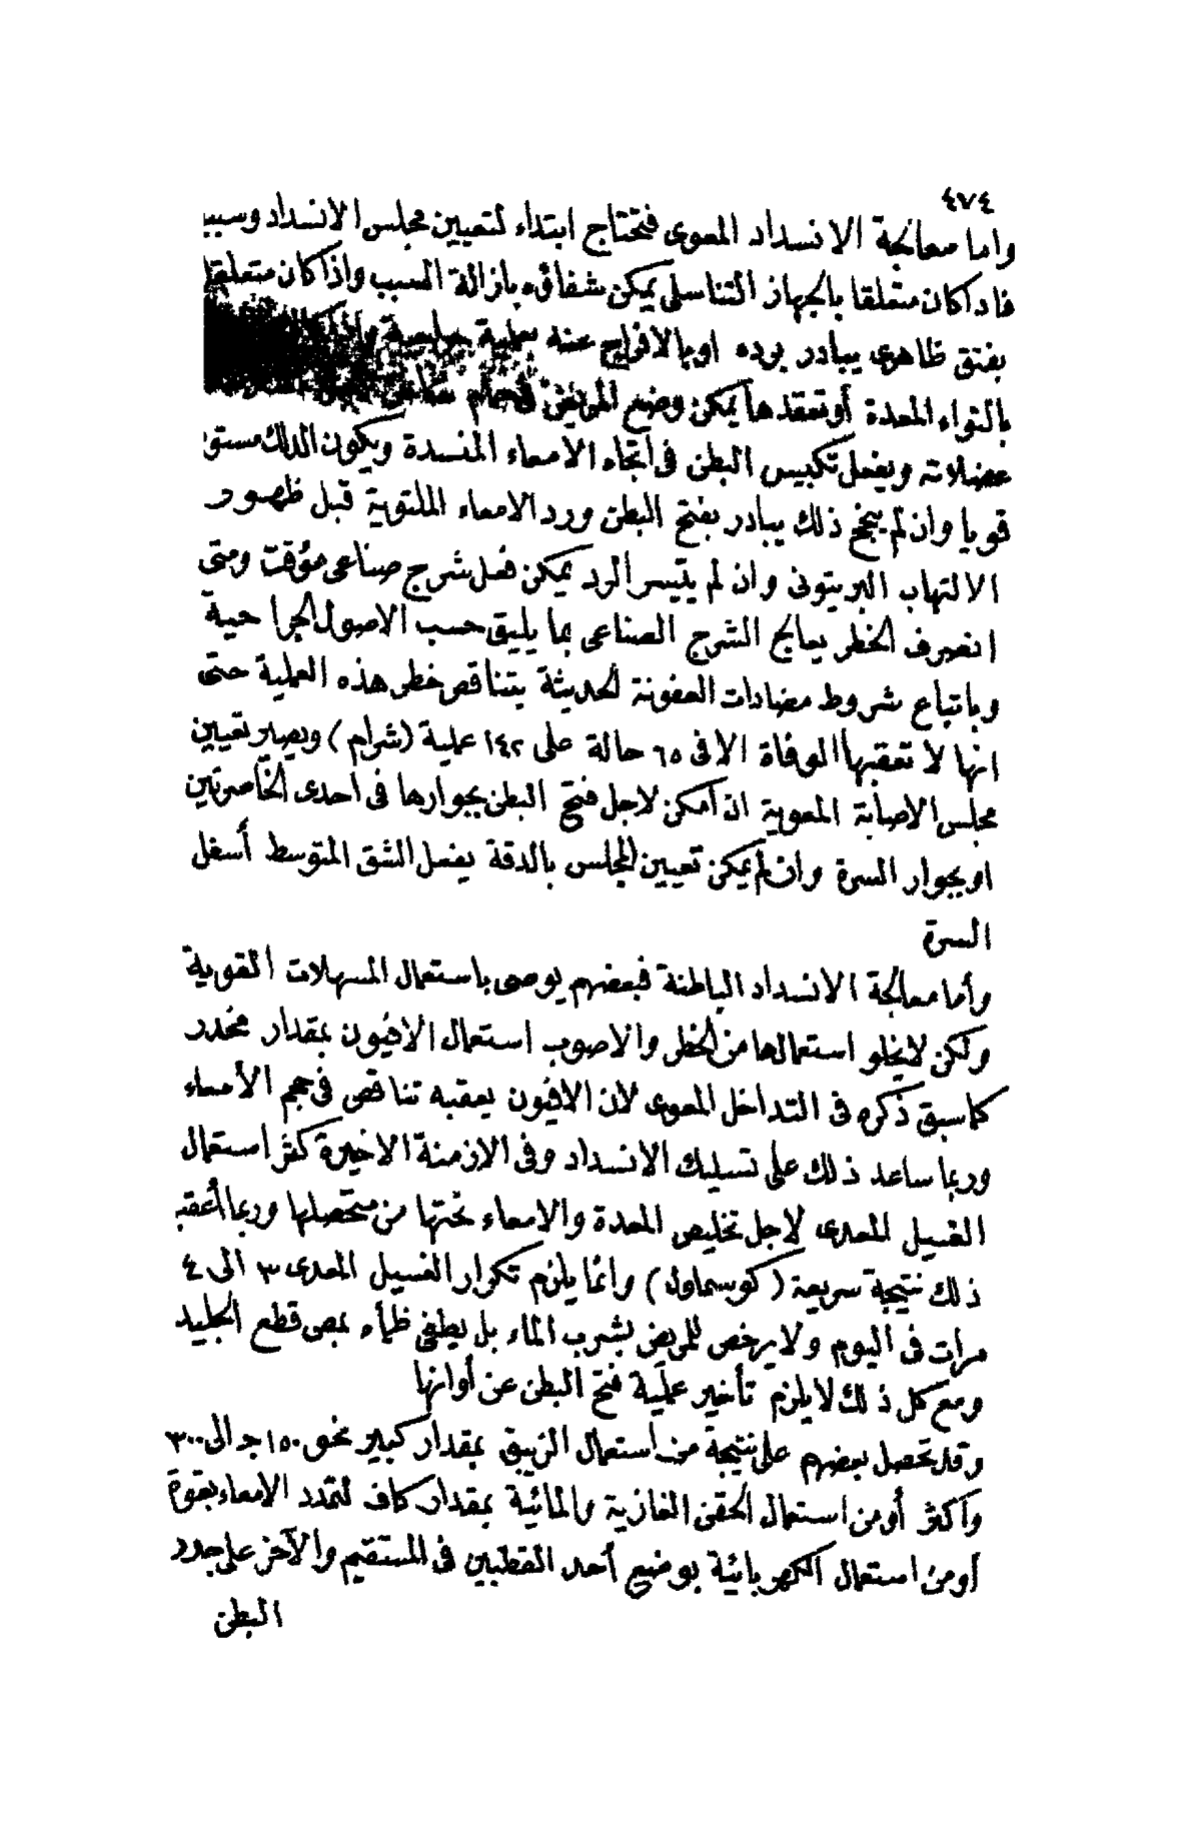 ٤٧٤
واما معالجة الانسداد المعوى فتحتاج ابتداء لتعيين مجلس الانسداد وسببه
فاذا كان متعلقا بالجهاز التناسلى يمكن شفاؤه بازالة السبب واذا كان متعلقا
بفتق ظاهرى يبادر برده اوبالافراج عنه بعملية جراحية
بالتواء المعدة أوتعقدها يمكن وضع المريض فى حمام
عضلاته ويفعل تكبيس البطن فى اتجاه الامعاء المنسدة ويكون الدلك مستو
قويا وان لم ينجح ذلك يبادر بفتح البطن ورد الامعاء الملتوية قبل ظهور
الالتهاب البريتونى وان لم يتيسر الرد يمكن فعل شرج صناعى مؤقت ومتى
انصرف الخطر يعالج الشرج الصناعى بما يليق حسب الاصول الجراحية
وباتباع شروط مضادات العفونة الحديثة يتناقص خطر هذه العملية حتى
انها لا تعقبها الوفاة الا فى ٦٥ حالة على ١٤٢ عملية (شرام) ويصير تعيين
مجلس الاصابة المعوية ان امكن لاجل فتح البطن بجوارها فى احدى الخاصرتين
او بجوار السرة وان لم يمكن تعيين المجلس بالدقة يفعل الشق المتوسط أسفل
السرة
وأما معالجة الانسداد الباطنة فبعضهم يوصى باستعمال المسهلات القوية
ولكن لايخلو استعمالها من الخطر والاصوب استعمال الافيون بمقدار مخدر
كما سبق ذكره فى التداخل المعوى لان الافيون يعقبه تناقص فى حجم الأمعاء
وربما ساعد ذلك على تسليك الانسداد وفى الازمنة الاخيرة كثر استعمال
الغسيل المعدى لاجل تخليص المعدة والامعاء تحتها من متحصلها وربما أعقب
ذلك نتيجة سريعة (كوسماول) وانما يلزم تكرار الغسيل المعدى ٣ الى ٤
مرات فى اليوم ولا يرخص للمريض بشرب الماء بل يطفئ ظمأه بمص قطع الجليد
ومع كل ذلك لا يلزم تأخير عملية فتح البطن عن أوانها
وقد تحصل بعضهم على نتيجة من استعمال الزيبق بمقدار كبير نحو ١٥٠ جـ الى ٣٠٠
وأكثر أومن استعمال الحقن الغازية والمائية بمقدار كاف لتمدد الامعاء بقوة
أومن استعمال الكهربائية بوضع أحد القطبين فى المستقيم والآخر على جدر
البطن